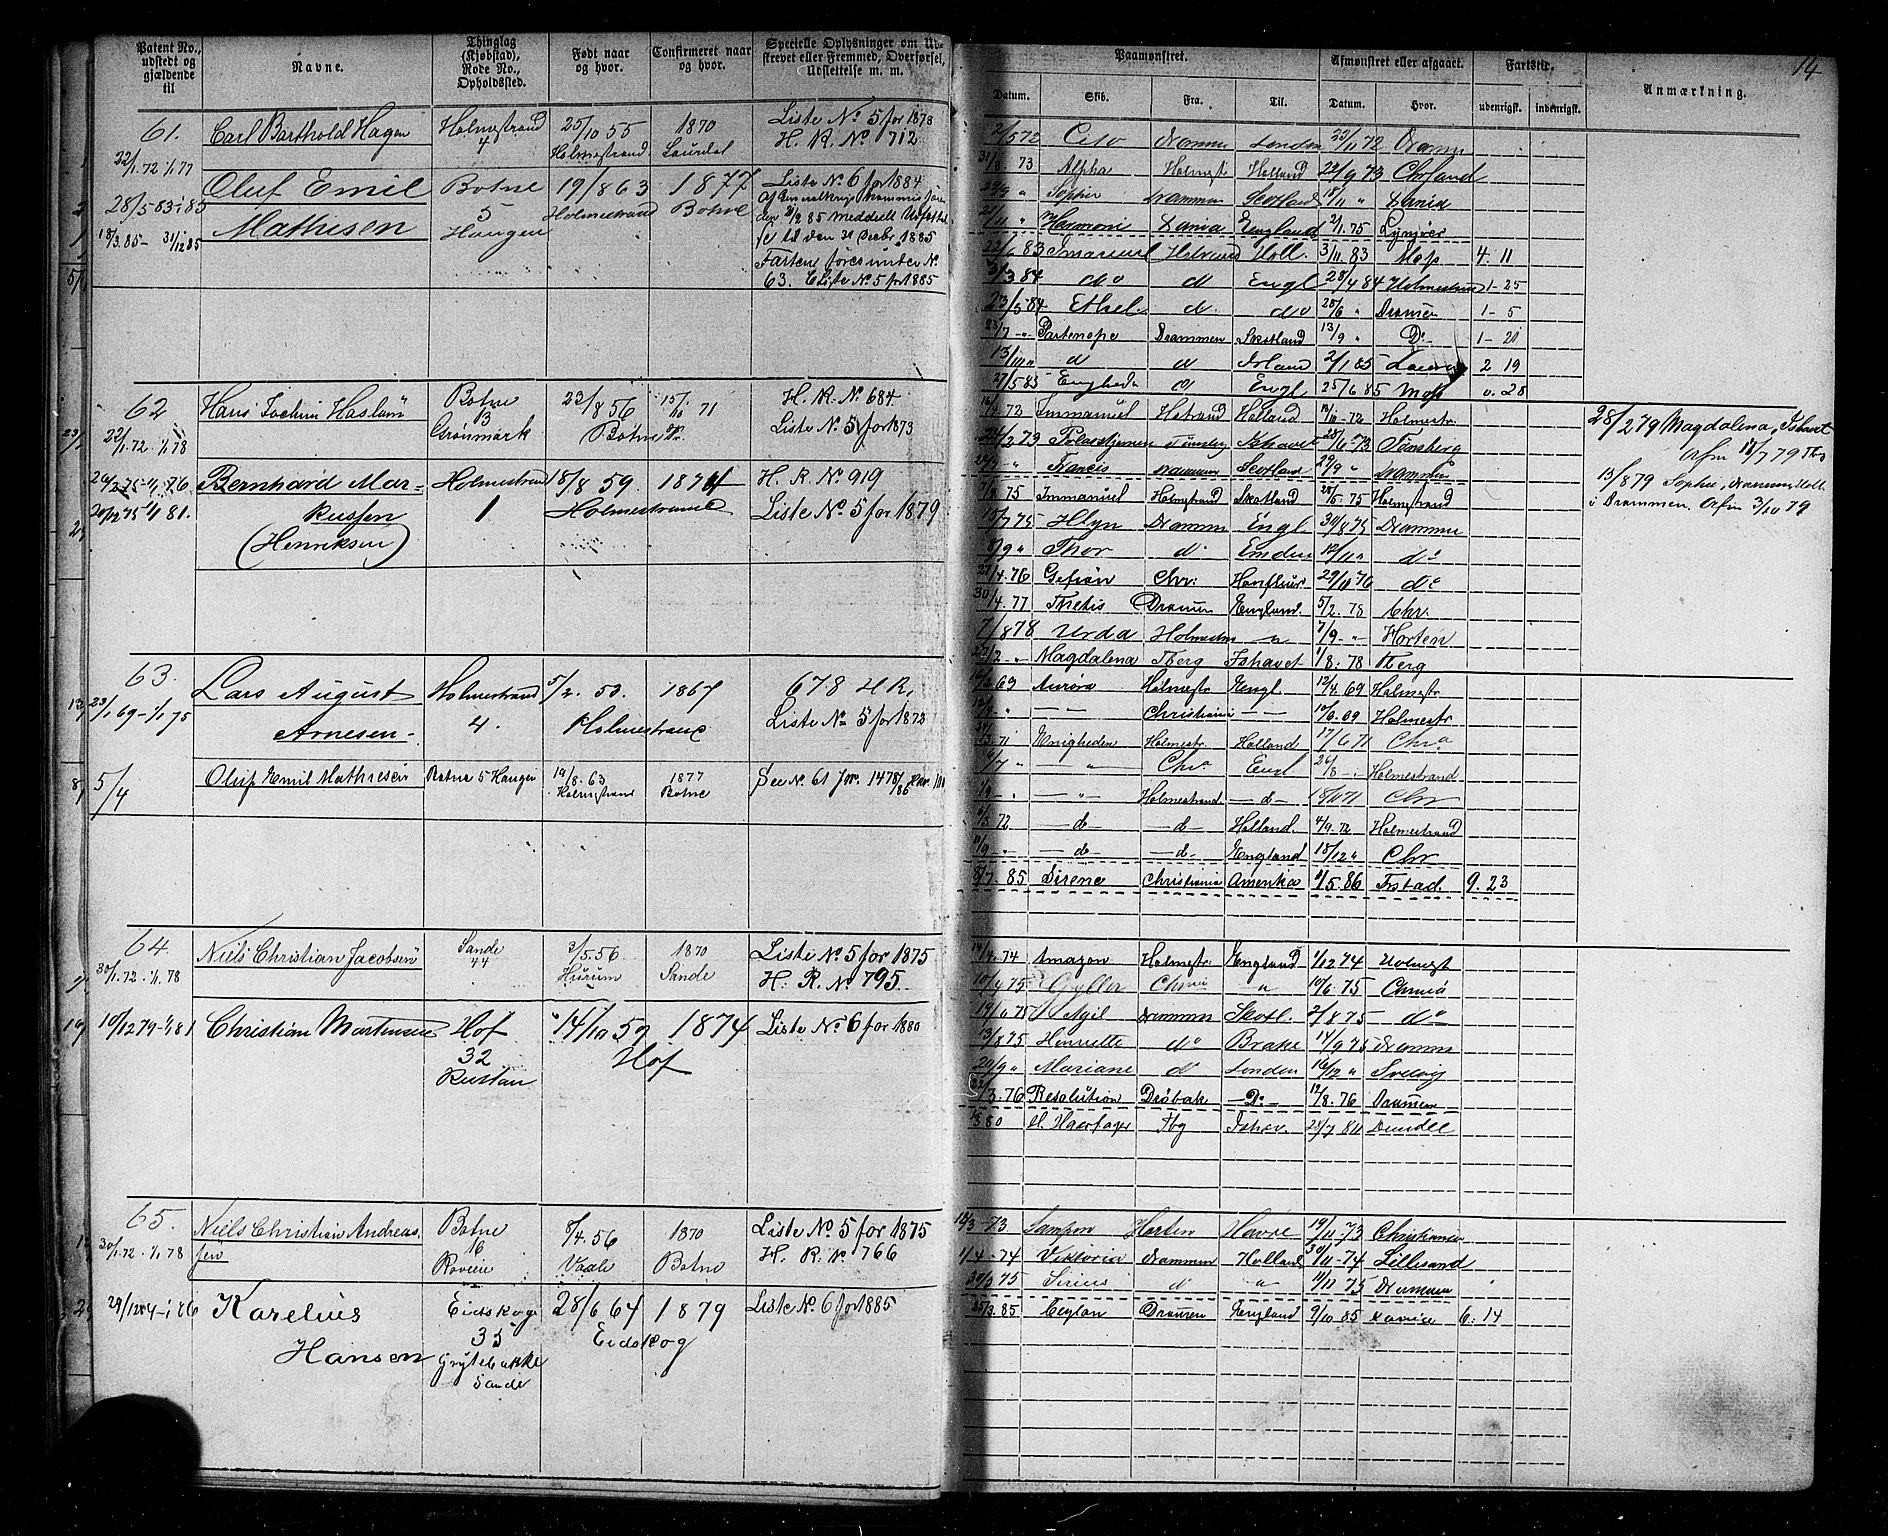 Patent No., udstedt og gjældende til
Navne.
Thinglag (Kjøbstad), Rode No., Opholdssted.
Født naar og hvor.
Confirmeret naar og hvor.
Specielle Oplysninger om Udstrevet eller Fremmed, Overførsel, Udslettelse m. m.
Paamønstret.
Afmønstret eller afgaaet.
Fartstid.
Anmærkning.
14
Datum. Skib. Fra. Til. Datum. Hvor. udenrigst. indenrigst.
61. Carl Barthold Hagen Holmestrand 25/10 55 1870 Liste No 5 for 1878
22/1.72 1/1 77 4 Holmestrand Laurdal H. R. No 712
Oluf Emil Botne 19/8 63 1877 Liste No 6 for 1884
28/5 83 1/1 85 Mathisen 5 Holmestrand Botne
18/3.85 - 31/12 85 Haugen
til den 31 Decbr 1885
Farten føres under No
63. Liste No 5 for 1885
2/5 72 Cito Drammn London 22/11 72 Dramn
31/3 73 Alpha Holmst Holland 22/9 73 Chrsand
Sophie Drammen Scotland 18/11 "
Harmonie Dania England 2/1.75 Lyngør
22/6 83 Imanuel Holmstrand Holl. 3/11 83 Moss 4. 11
3/3 84 do d Engl 28/4 84 Holmestrand 1-25
23/5 84 Ethel d. do 28/6 " Dramen 1-5
23/7 -" Partenope Drammen Skotland 13/9 " Do 1-20
13/10 " d d Irland 2/1 85 2 19
27/5 85 Engheden d Engl 25/6 85 Moss 0. 28
62 Hans Jochim Haslum Botne 22/8 56 15/10 71 H. R. No 684.
22/1.72 1/1 78 13 Grønmark Botne Pr. Liste No 5 for 1873
Bernhard Mar- Holmestrand 18/8 59. 1874 H. R. No 919
20/12 75 1/1 81. kussen 1 Holmestrand Liste No. 5 for 1879
(Henriksen)
73 Immanuel Hstrand Holland 72 Holmestr.
24/2 73 Polarstjernen Tønsberg Ishavet 73 Tønsberg
Francis Drammen Scotland 29/9 " Drammen
75 Immanuel Holmstrand Skotland 75 Holmstrand
15/7 75 Hlyn Dramm Engl 30/8 75 Drammn
8/9 " Thor do Emden 12/11 " do
27/4.76 Gefion Chr: Honfleur 29/11 76 do
30/4. 77 Thetis Dramen England. 5/2. 78 Chr.
7/8 78 Urda Holmestr " 7/9 -" Horten
27/2 " Magdalena Tberg Ishavet 1/8. 78 Tberg
28/2 79 Magdalena, Ishavet
Afm 18/7 79 Tbg
13/8 79 Sophie, Dramen, Holl.
i Drammen. Afm 3/10 79
63. Lars August Holmestrand 5/2. 53. 1867 678 H R,
23/1 69 - 1/1 75 Arnesen. 4. Holmestrand Liste No 5 for 1873
Oluf Emil Mathiesen Botne 5 Haugen 19/8. 63 1877 See No 61
5/4 Holmstrand Botne
69 Aurora Holmestr Engl. 12/4 69 Holmestr
" — " — Christiania — — 10/6. 69 Holmestr.
71 Enigheden Holmestr. Holland 17/6 71 Chra
" " Chra Engl 26/8 - Holmestrand
— " — Holmestrand — d — 18/10 71 Chr
72 — d — — d — Holland. 4/9. 72 Holmestrand
— d — — d — England 15/12 " Chr
8/7. 85 Sirene Christiania Amerika 11/5. 86 Frstad. 9. 23
64. Niels Christian Jacobsen Sande 3/5.56 1870 Liste No. 5 for 1875
30/1.72 1/1. 78 44 Hurum Sande H. R. No 795.
10/12 79 - 1/1 81 Christian Martensen Hof 14/10 59 1874 Liste No 6 for 1880
32 Hof
Rustan
14/4. 74 Amazon Holmestr. England 1/12 74 Holmst
10/4 75 Gyller Chrnia " 10/6. 75 Chrnia
19/6 75 Agil Drammn Skotl. 2/8 75 do
13/8 75 Henriette do Brake 14/9 75 Dramn
29/9 " Mariane d London 16/12 " Svelvig
76 Resolution Drøbak — Do — 19/8. 76 Dramen
80 H. Haarfager Tbg Ishav. 80 Dundee
65. Niels Christian Andreas- Botne 8/4.56 1870 Liste No. 5 for 1875
30/1.72 - 1/1 78 sen 16 Vaale Botne H. R. No 766
29/12 84 - 1/1 86 Karelius Eidskog 28/6 64 1879 Liste No. 6 for 1885
Hansen 35 Eidskog
Grytebakke
Sande
73 Sampson Horten Havre 19/11.73 Christiania
1/4 - 74 Viktoria Drammen Holland 30/11 - 74 Lillesand
75 Sirius d " 75 Drammen
25/3.85 Ceylon Dramen England 9/10 85 6. 14